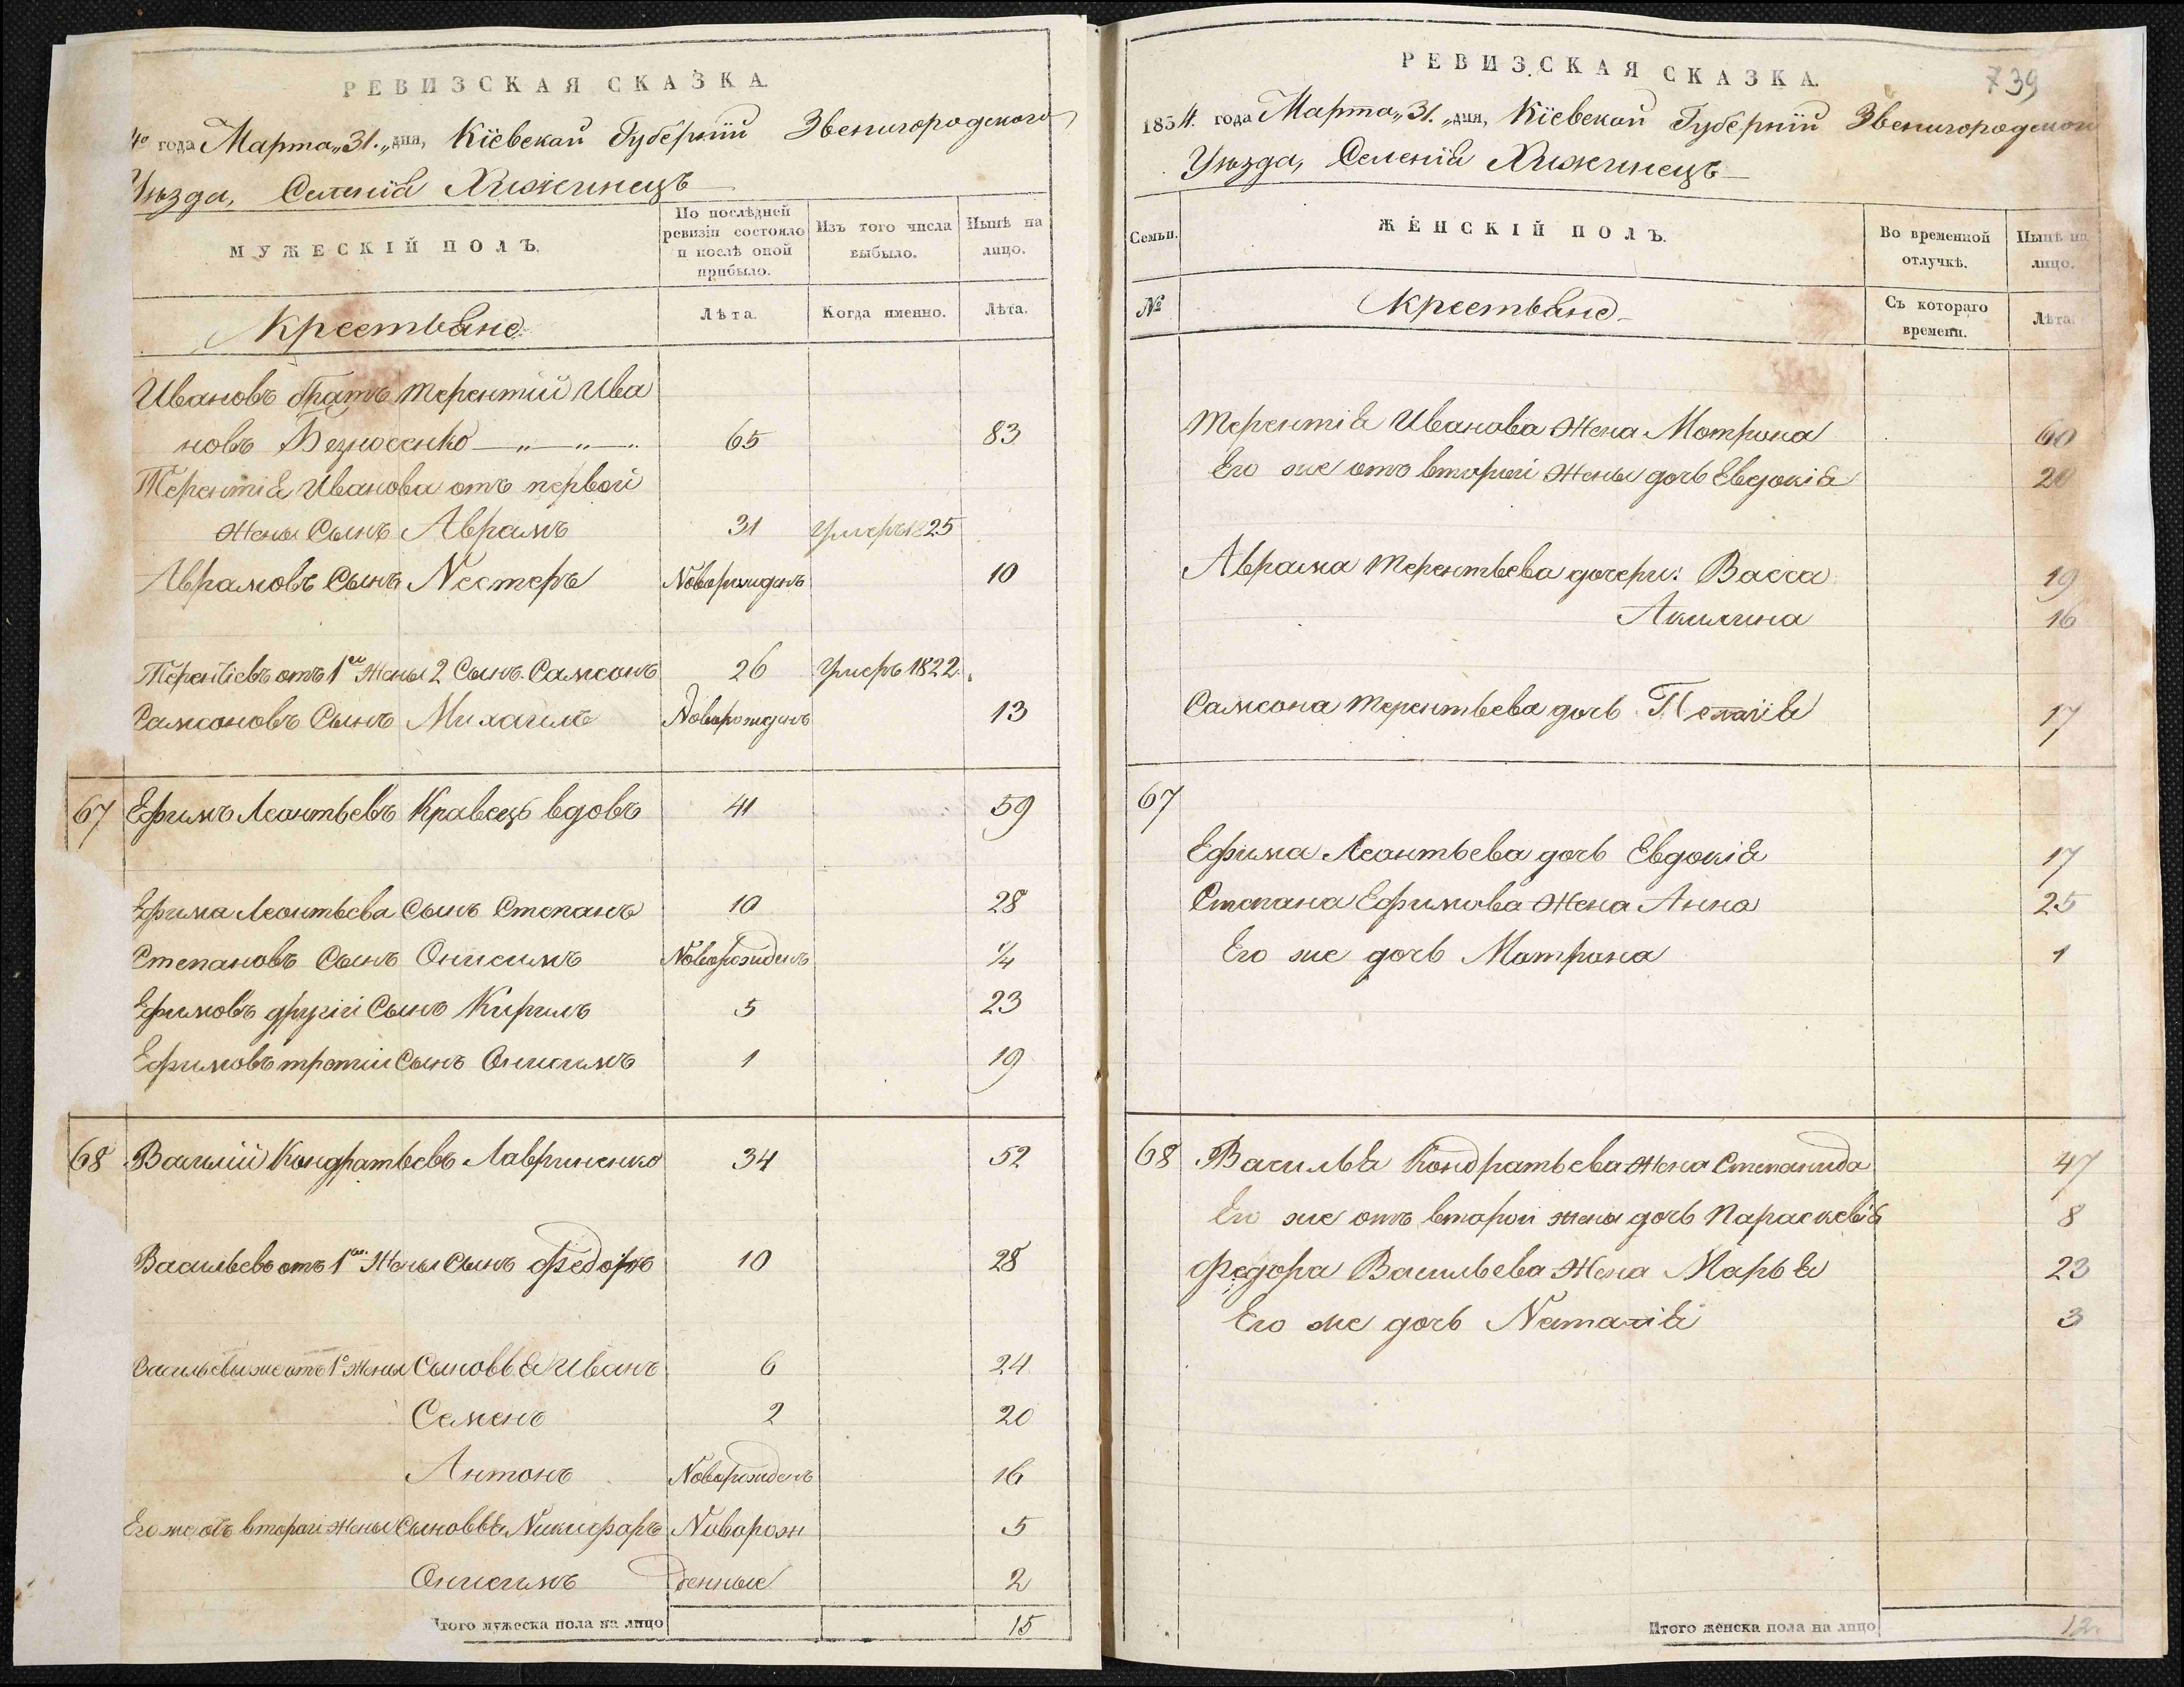 РЕВИЗСКАЯ СКАЗКА.
4º года Марта „31.„ дня, Кіевской Губерніи Звенигородского
Уѣзда, Селенія Хижинецъ
МУЖЕСКІЙ ПОЛЪ.
По послѣдней ревизіи состояло и послѣ оной прибыло.
Изъ того числа выбыло.
Нынѣ на лицо.
Крестьяне.
Лѣта.
Когда именно.
Лѣта.
Ивановъ братъ Терентій Ива
новъ Безносенко — „ — „ — 65 83
Терентія Иванова отъ первой
жены Сынъ Аврамъ 31 Умеръ 1825
Аврамовъ Сынъ Нестеръ Новорожденъ 10
Терентіевъ отъ 1ей жены 2 Сынъ Самсонъ 26 Умеръ 1822.
Самсоновъ Сынъ Михаилъ Новорожденъ 13
67 Ефимъ Леонтьевъ Кравецъ вдовъ 41 59
Ефима Леонтьева Сынъ Степанъ 10 28
Степановъ Сынъ Онисимъ Новорожденъ 1/4
Ефимовъ другій Сынъ Кирилъ 5 23
Ефимовъ третіи Сынъ Онисимъ 1 19
68 Василій Кондратьевъ Лавриненко 34 52
Васильевъ отъ 1ой жены Сынъ Федоръ 10 28
Васильевы же отъ 1й жены Сыновья Иванъ 6 24
Семенъ 2 20
Антонъ Новорожденъ 16
Его же отъ второй жены Сыновья Никифоръ Новорож 5
Онисимъ денные 2
Итого мужеска пола на лицо 15
РЕВИЗСКАЯ СКАЗКА.
739
1834. года Марта „31.„ дня, Кіевской Губерніи Звенигородской
Уѣзда, Селенія Хижинецъ
Семьи.
ЖЕНСКІЙ ПОЛЪ.
Во временной отлучкѣ.
Нынѣ на лицо.
№
Крестьяне
Съ котораго времени.
Лѣта.
Терентія Иванова жена Мотрона 60
Его же отъ второй жены дочь Евдокія 20
Аврама Терентьева дочери: Васса 19
Акилина 16
Самсона Терентьева дочь Пелагія 17
67
Ефима Леонтьева дочь Евдокія 17
Степана Ефимова жена Анна 25
Его же дочь Матрона 1
68 Василья Кондратьева жена Степанида 47
Его же отъ второй жены дочь Параскевія 8
Федора Васильева жена Марья 23
Его же дочь Наталія 3
Итого женска пола на лицо 12.